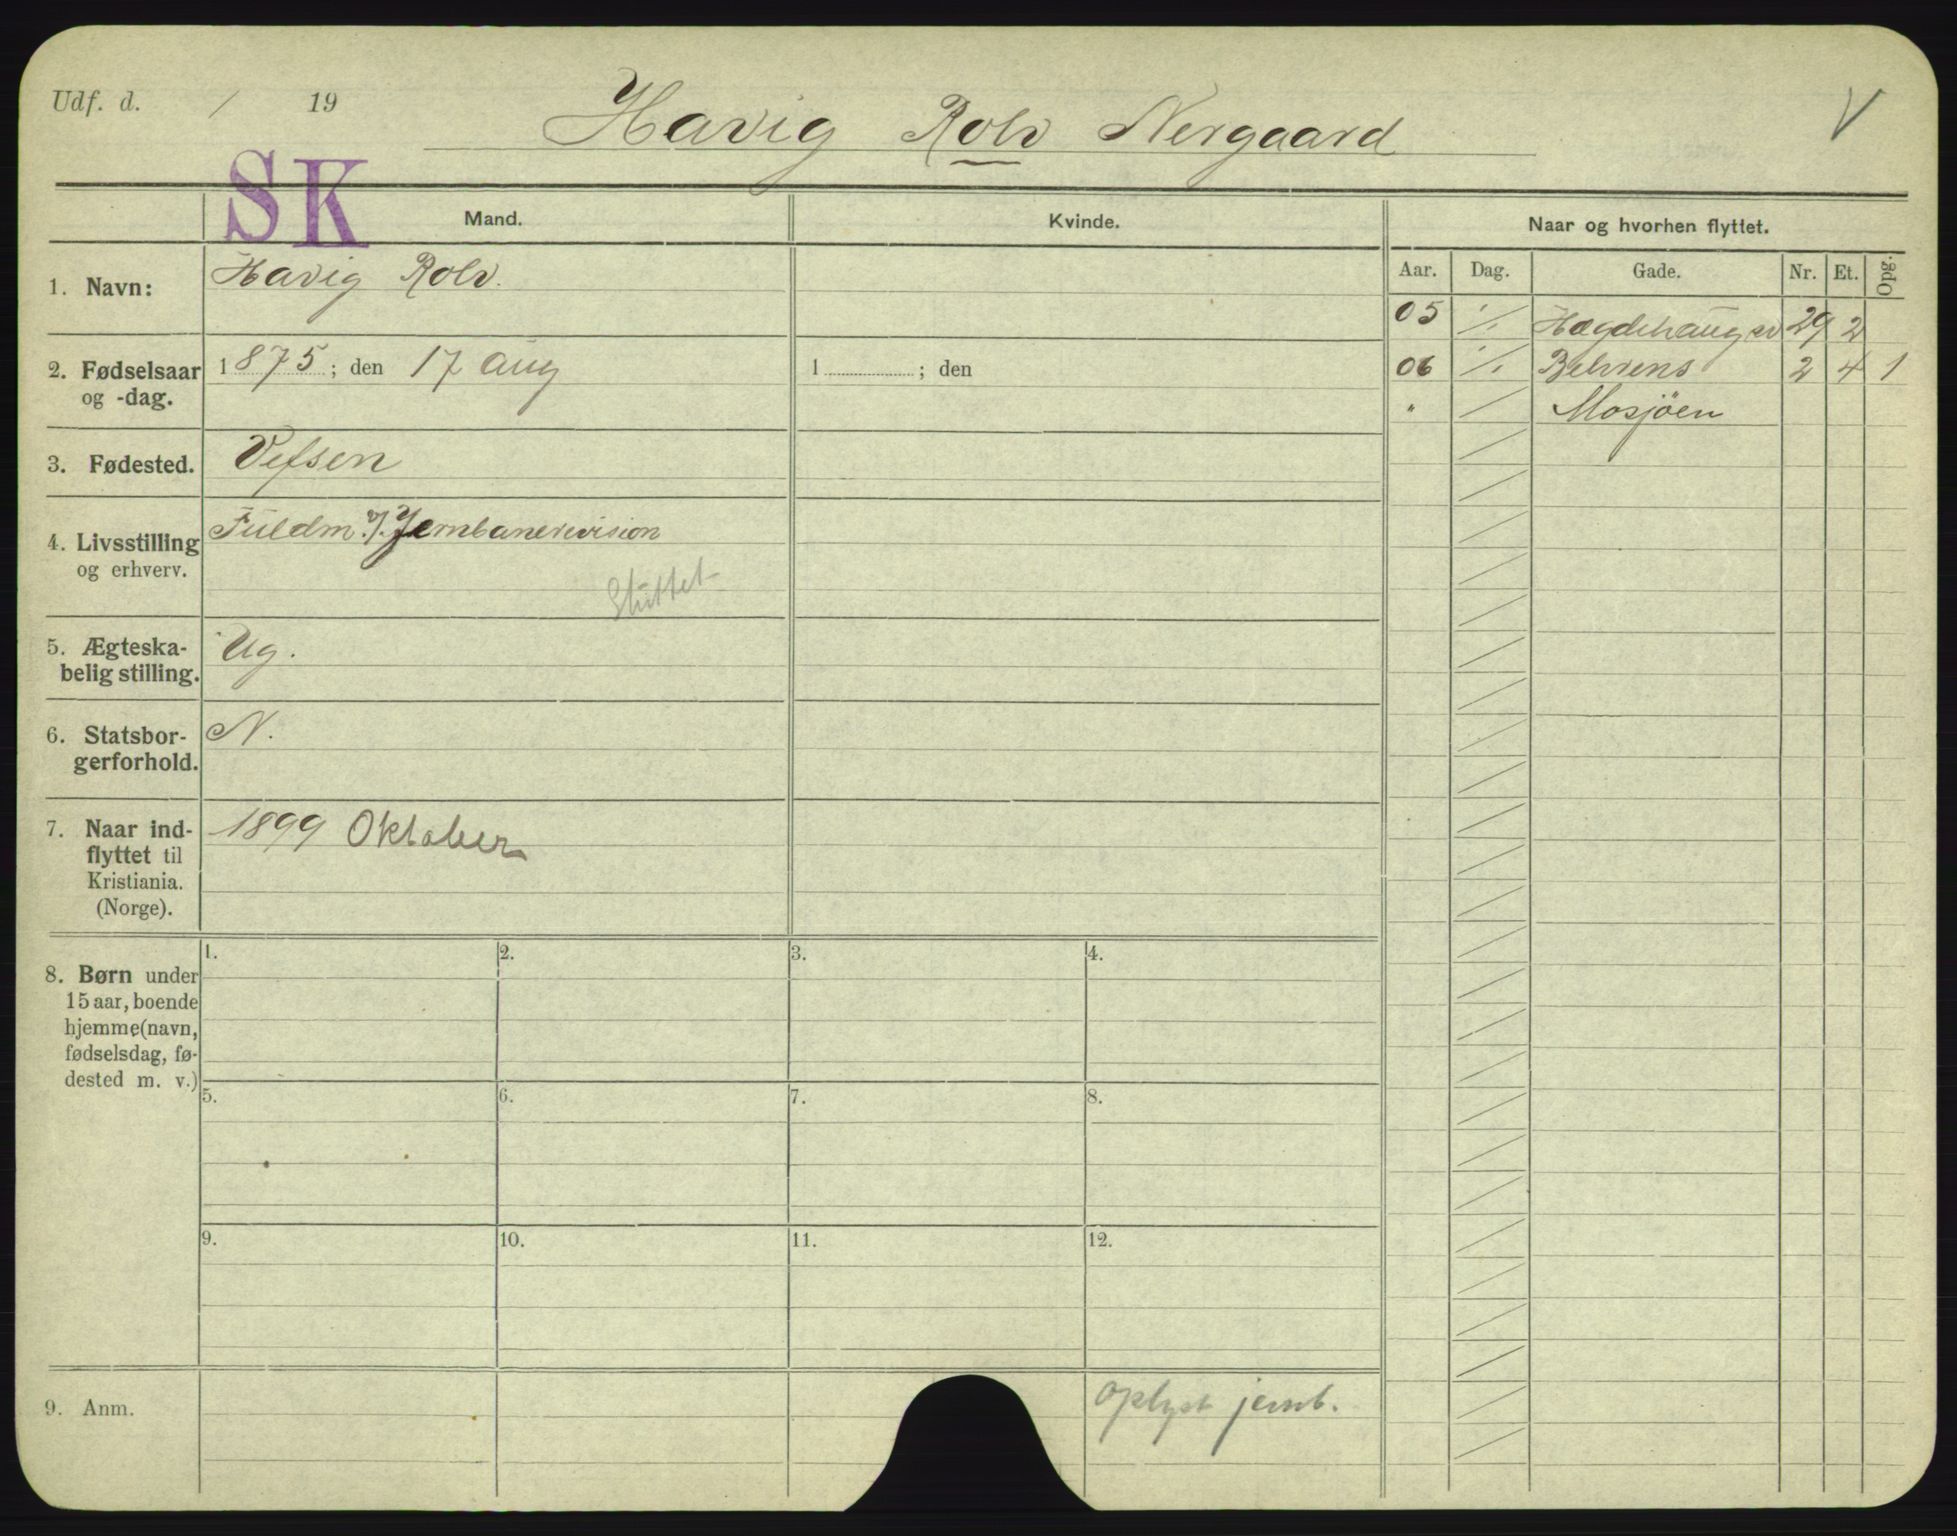 Udf. d. / 19
Havig Rolv Nergaard
V
SK
Mand.
Kvinde.
Naar og hvorhen flyttet.
Aar. Dag. Gade. Nr. Et. Opg.
1. Navn:
Havig Rolv.
2. Fødselsaar
og -dag.
1875; den 17 aug
1 ; den
3. Fødested.
Vefsen
4. Livsstilling
og erhverv.
Fuldm. v/. Jernbanerevision
Sluttet
5. Ægteska-
belig stilling.
Ug.
6. Statsbor-
gerforhold.
N.
7. Naar ind-
flyttet til
Kristiania.
(Norge).
1899 Oktober
05 1/. Hægdehaugsv 29 2
06 1/. Behrens 2 4 1
" / Mosjöen
8. Børn under
15 aar, boende
hjemme(navn,
fødselsdag, fø-
dested m. v.)
1. 2. 3. 4.
5. 6. 7. 8.
9. 10. 11. 12.
9. Anm.
oplyst jernb.